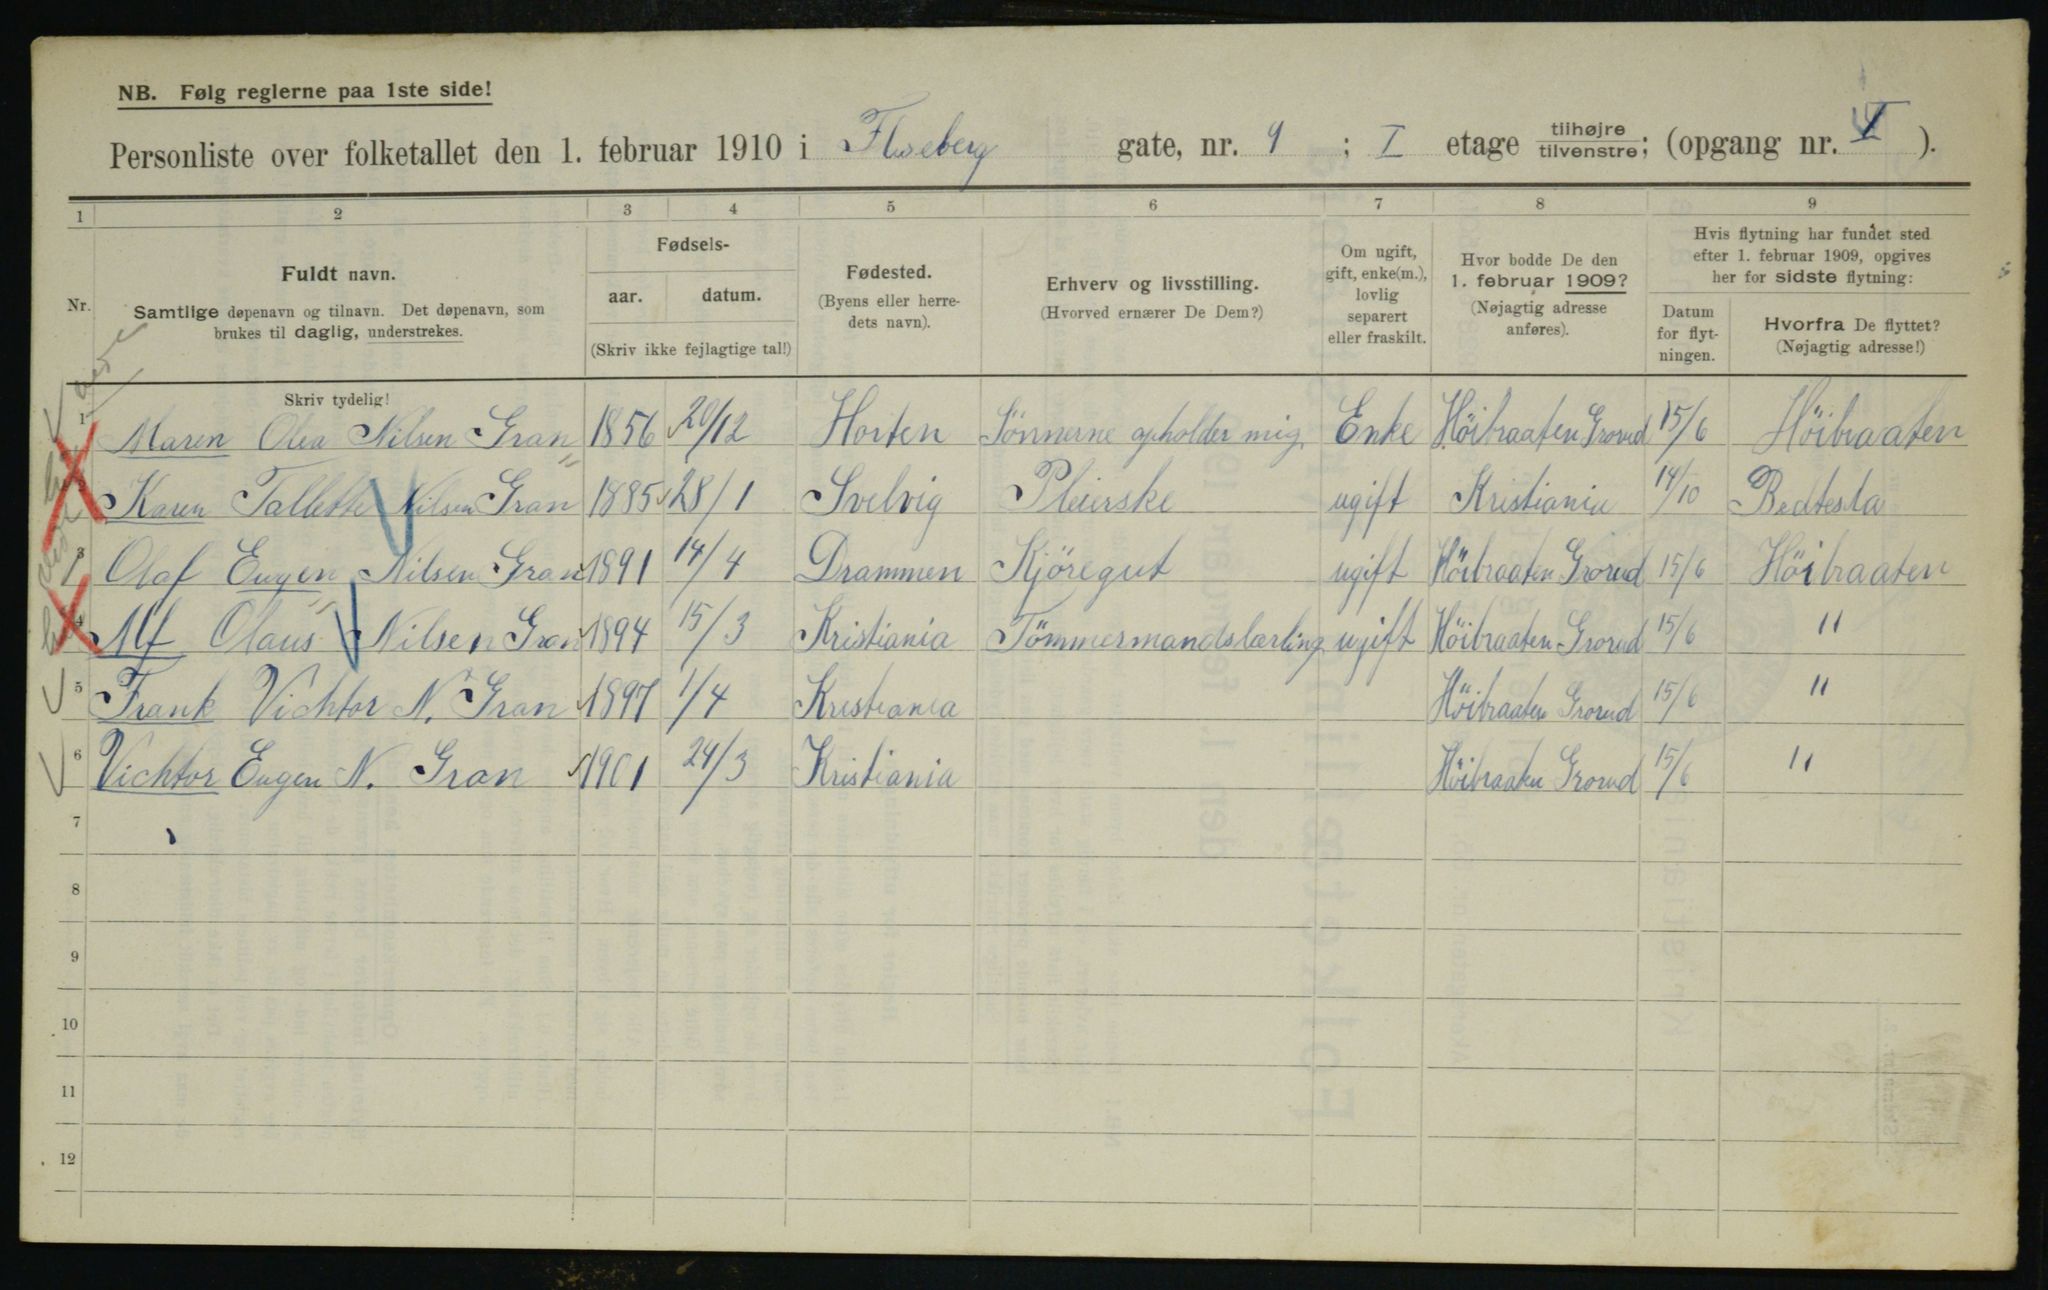 NB. Følg reglerne paa 1ste side!
Personliste over folketallet den 1. februar 1910 i Flesberg gate, nr. 9 ; I etage tilhøjre tilvenstre; (opgang nr. ).
1 2 3 4 5 6 7 8 9
Nr.
Fuldt navn.
Samtlige døpenavn og tilnavn. Det døpenavn, som
brukes til daglig, understrekes.
Skriv tydelig!
Fødsels-
aar. datum.
(Skriv ikke fejlagtige tal!)
Fødested.
(Byens eller herre-
dets navn).
Erhverv og livsstilling.
(Hvorved ernærer De Dem?)
Om ugift,
gift, enke(m.),
lovlig
separert
eller fraskilt.
Hvor bodde De den
1. februar 1909?
(Nøjagtig adresse
anføres).
Hvis flytning har fundet sted
efter 1. februar 1909, opgives
her for sidste flytning:
Datum
for flyt-
ningen.
Hvorfra De flyttet?
(Nøjagtig adresse!)
1 Maren Olea Nilsen Gran 1856 20/12 Horten Sönnerne opholder mig. Enke Höibraaten Grorud 15/6 Höibraaten
2 Karen Tallette Nilsen Gran 1885 28/1 Svelvig Pleierske ugift Kristiania 14/10 Bedtesta
3 Olaf Eugen Nilsen Gran 1891 14/4 Drammen Kjöregut ugift Höibraaten Grorud 15/6 Höibraaten
4 Alf Olaus Nilsen Gran 1894 15/3 Kristiania Tömmermandslærling ugift Höibraaten Grorud 15/6 "
5 Frank Vichtor N. Gran 1897 1/4 Kristiania Höibraaten Grorud 15/6 "
6 Vichtor Eugen N. Gran 1901 24/3 Kristiania Höibraaten Grorud 15/6 "
7
8
9
10
11
12